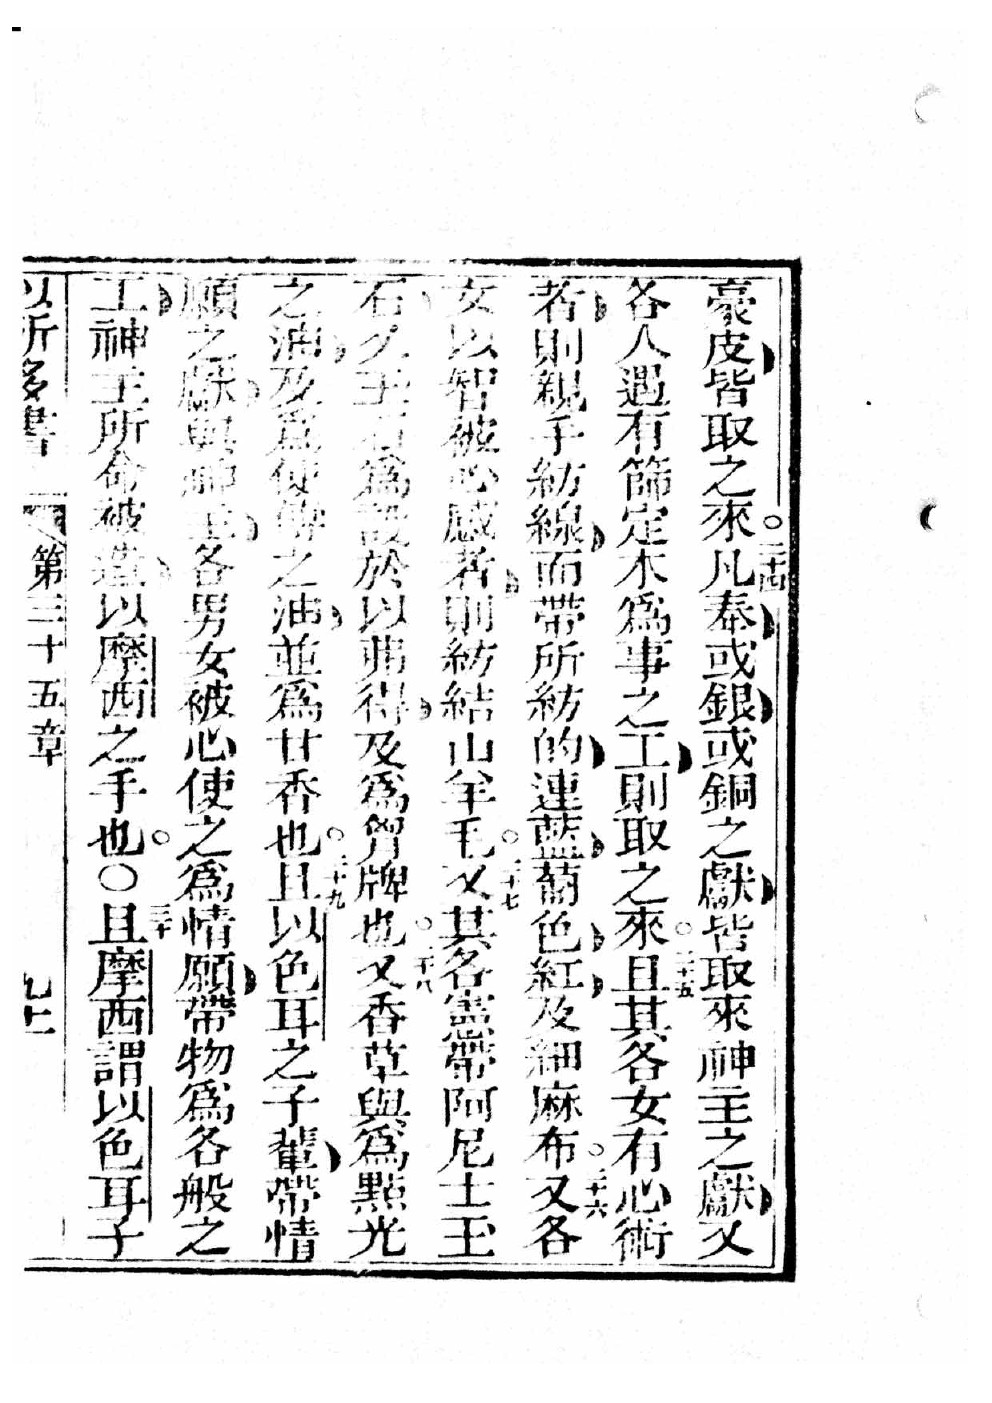 豪皮皆取之來○二十四凡奉或銀或銅之獻皆取來神主之獻又
各人遇有篩定木爲事之工則取之來○二十五且其各女有心術
者則親手紡線而帶所紡的連藍葡色紅及細麻布○二十六又各
女以智被心感者則紡結山羊毛○二十七又其各憲帶阿尼士玉
石及玉石爲設於以弗得及爲胷牌也○二十八又香草與爲點光
之油及爲使傅之油並爲甘香也○二十九且以色耳之子輩帶情
願之獻與神主各男女被心使之爲情願帶物爲各般之
工神主所命被造以摩西之手也○○三十且摩西謂以色耳子
以所多書 第三十五章 九十